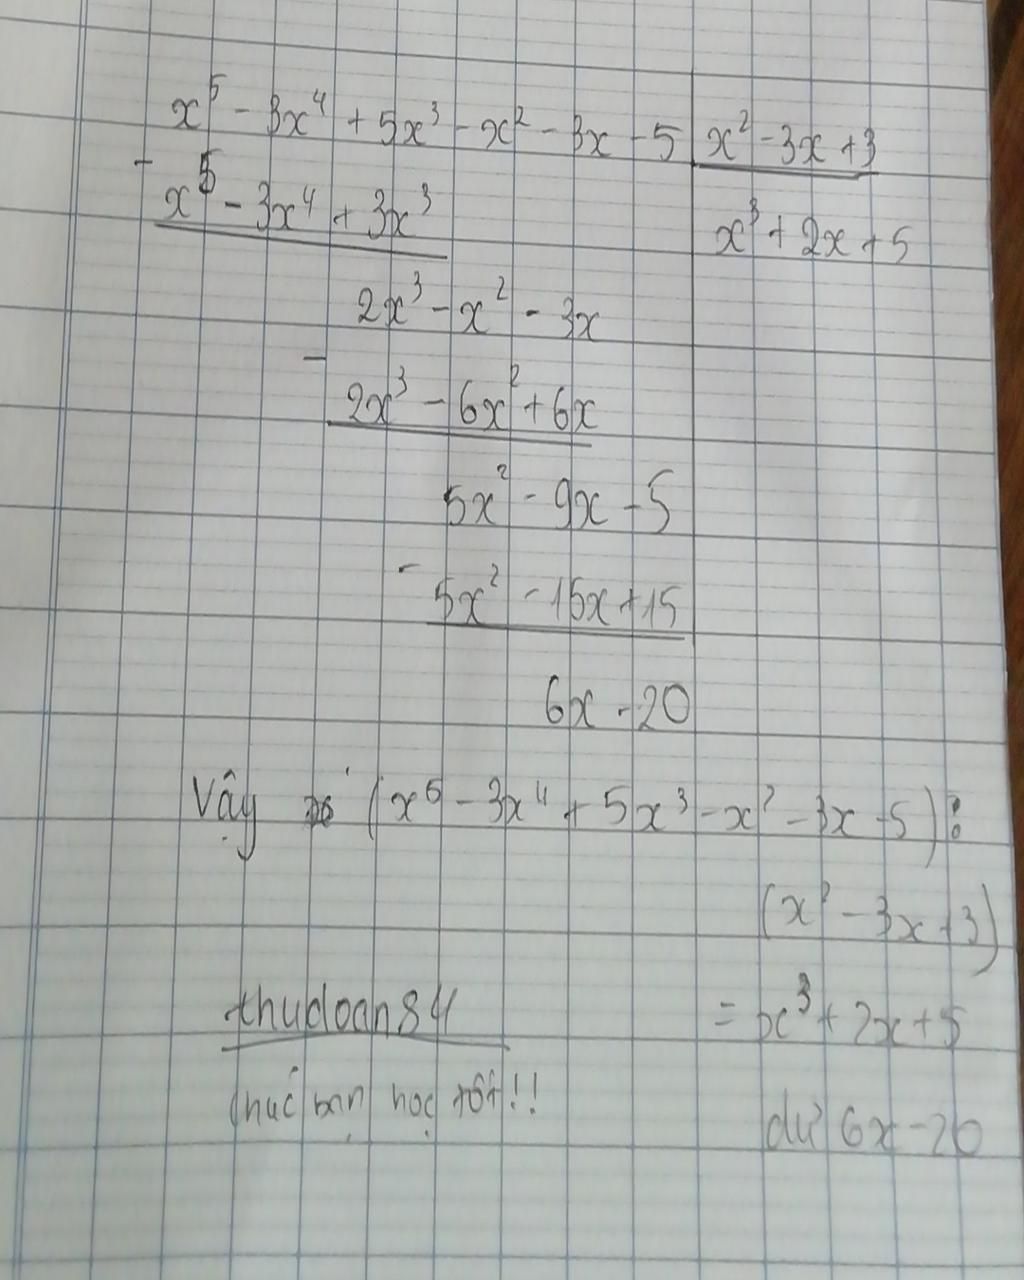 x⁵ - 3x⁴ + 5x³ - x² - 3x - 5 | x² - 3x + 3
- x⁵ - 3x⁴ + 3x³
x³ + 2x + 5
2x³ - x² - 3x
- 2x³ - 6x² + 6x
5x² - 9x - 5
- 5x² - 15x + 15
6x - 20
Vậy (x⁵ - 3x⁴ + 5x³ - x² - 3x - 5) :
(x² - 3x + 3)
= x³ + 2x + 5
dư 6x - 20
thudoan84
Chúc bạn học tốt!!